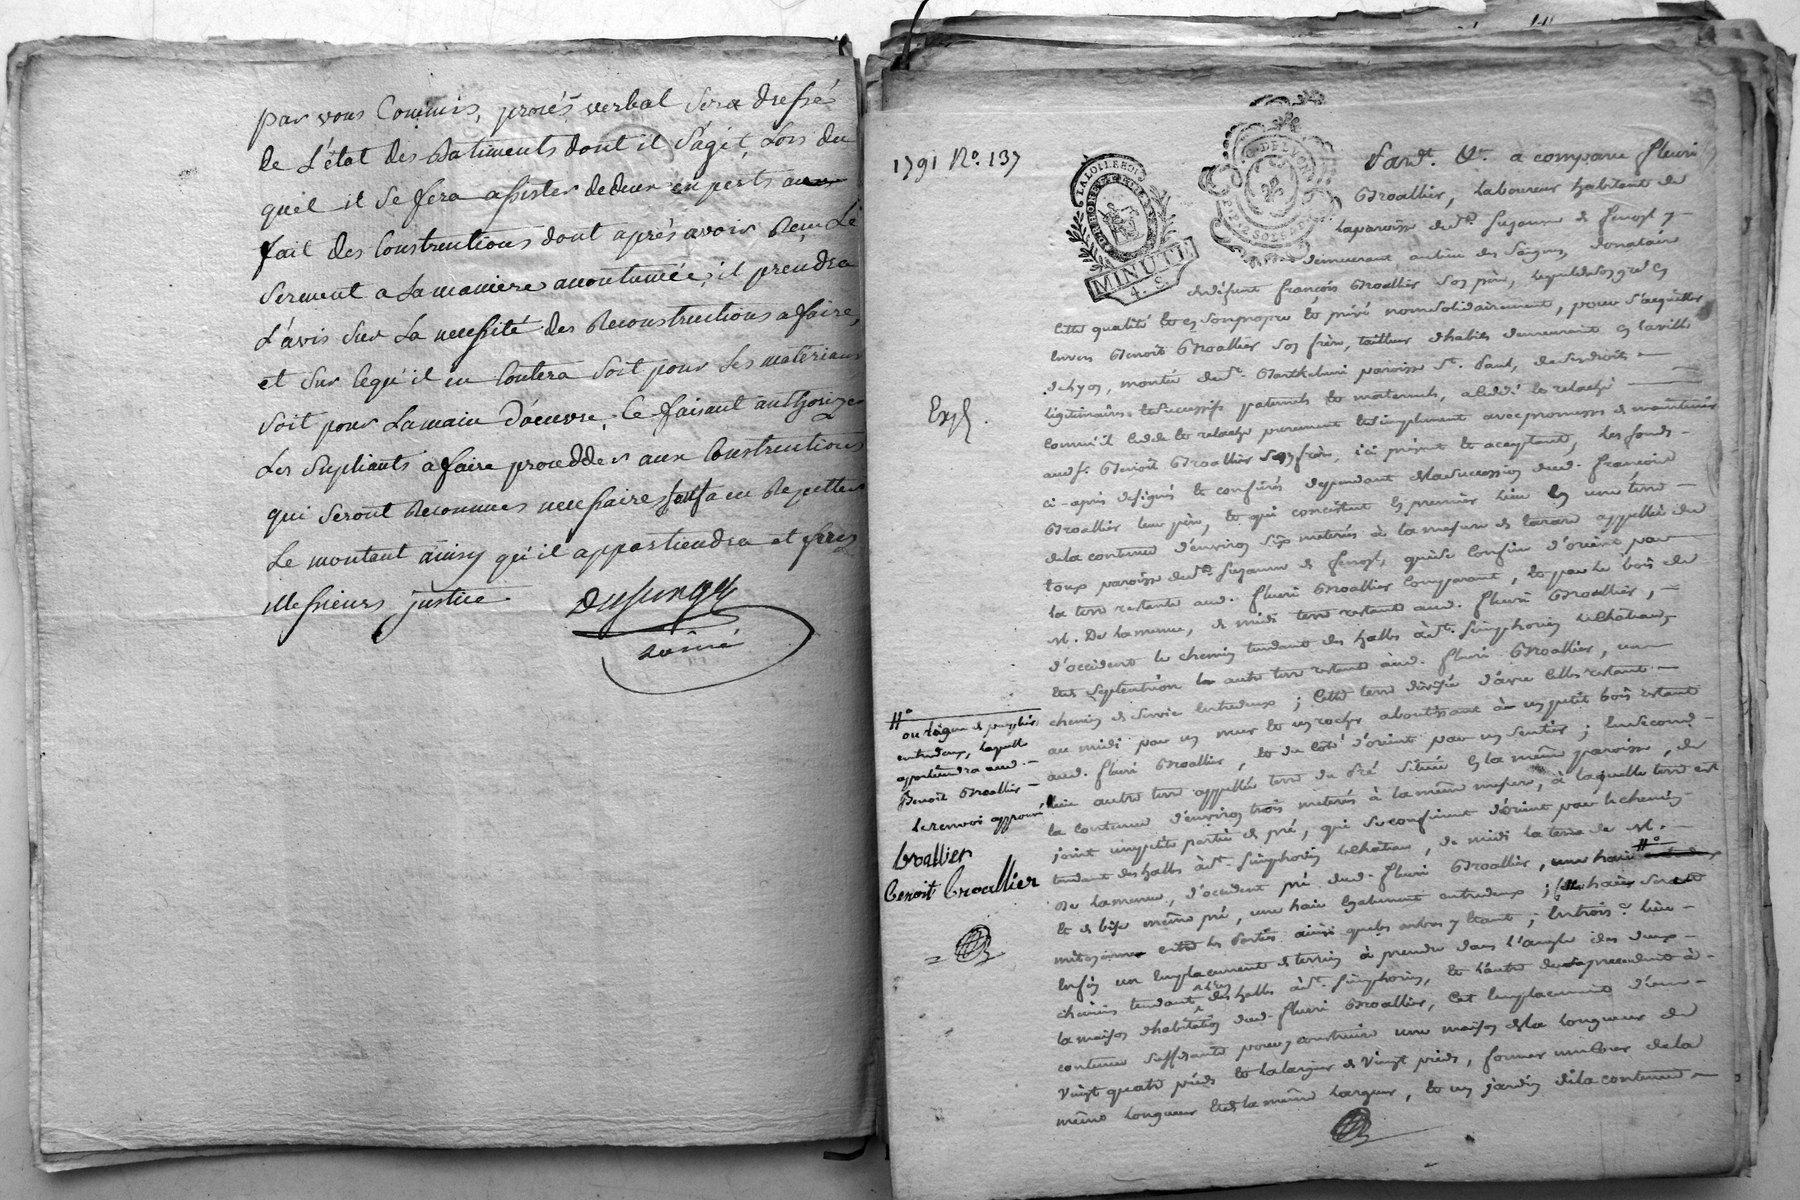 par vous Commis, procés verbal Sera dressé
de L'état des Batiments dont il S'agit, Lors du
quel il Se fera assister de deux experts au
fait des Constructions dont aprés avoir Reçu Le
Serment a La maniere accoutumée, il prendra
L'avis Sur La necessité des Reconstructions a faire,
et Sur cequ'il en Coutera Soit pour Les materiaux
Soit pour Lamain d'œuvre, Ce faisant authoriser
Les Supliants a faire proceder aux Constructions
qui Seront Reconnues necessaires sauf a en Repetter
Le montant ainsy qu'il appartiendra et ferez
Messieurs justice
Lainé
1791 No. 137
LA LOI LE ROI
MINUTE
4. S.
Pardt. &a. a comparu fleuri
Groallier, laboureur habitant de
laparoisse de Ste. Suzanne de
demeurant au lieu des donataire
de défunt françois Groallier son père, lequel
cette qualité et en son propre et privé nom solidairement, pour s'acquitter
envers Benoit Groallier son frère, tailleur d'habits demeurant en laville
de Lyon, montée de St. Barthelemi paroisse St. Paul, de ses droits
légitimaires et successifs paternels et maternels, a cédé et relaché
comm'il cede et relache purement et simplement avec promesse de maintenir
audt. Benoit Groallier son frère, ici présent et acceptant, les fonds
ci-après désignés et confinés dependant de la succession dud. françois
Groallier leur père, et qui consistent en premier lieu en une terre
de la contenue d'environ six meterés à la mesure de tarare appellée du
paroisse de Ste. Suzanne de qui se confine d'orient par
la terre restante aud. fleuri Groallier comparant, et par le bois de
M. De lamenue, de midi terre restant aud. fleuri Groallier,
d'occident le chemin tendant des halles à St. Simphorien le château,
et de septentrion autre terre restant aud. fleuri Groallier, un
chemin de servie entredeux ; cette terre divisée d'avec celle restant
au midi par un mur et un rocher aboutissant à un petit bois restant
aud. fleuri Groallier, et du coté d'orient par un sentier ; en second
lieu autre terre appellée terre du Pré située en la même paroisse, de
la contenue d'environ trois meterés à la même mesure, à laquelle terre est
joint une petite partie de pré, qui se confinent d'orient par le chemin
tendant des halles à St. Simphorien le château, de midi la terre de M.
De lamenue, d'occident pré dud. fleuri Groallier, une haie
et de bise même pré, une haie également entredeux ; haie sera
mitoyenne entre les parties ainsi que les arbres y étant ; en trois.e lieu
enfin un emplacement de terrein à prendre dans l'angle des deux
chemins tendant des halles à St. Simphorien, et l'autre
la maison d'habitation dud. fleuri Groallier, cet emplacement d'une
contenue suffisante pour y construire une maison de la longueur de
vingt quatre pieds et la largeur de vingt pieds, former une cour de la
même longueur et de la même largeur, et un jardin de la contenue
Exp.
#o
entredeux, laquelle
appartiendra aud.
Benoit Groallier
le renvoi approuvé
Groallier
Benoit Groallier